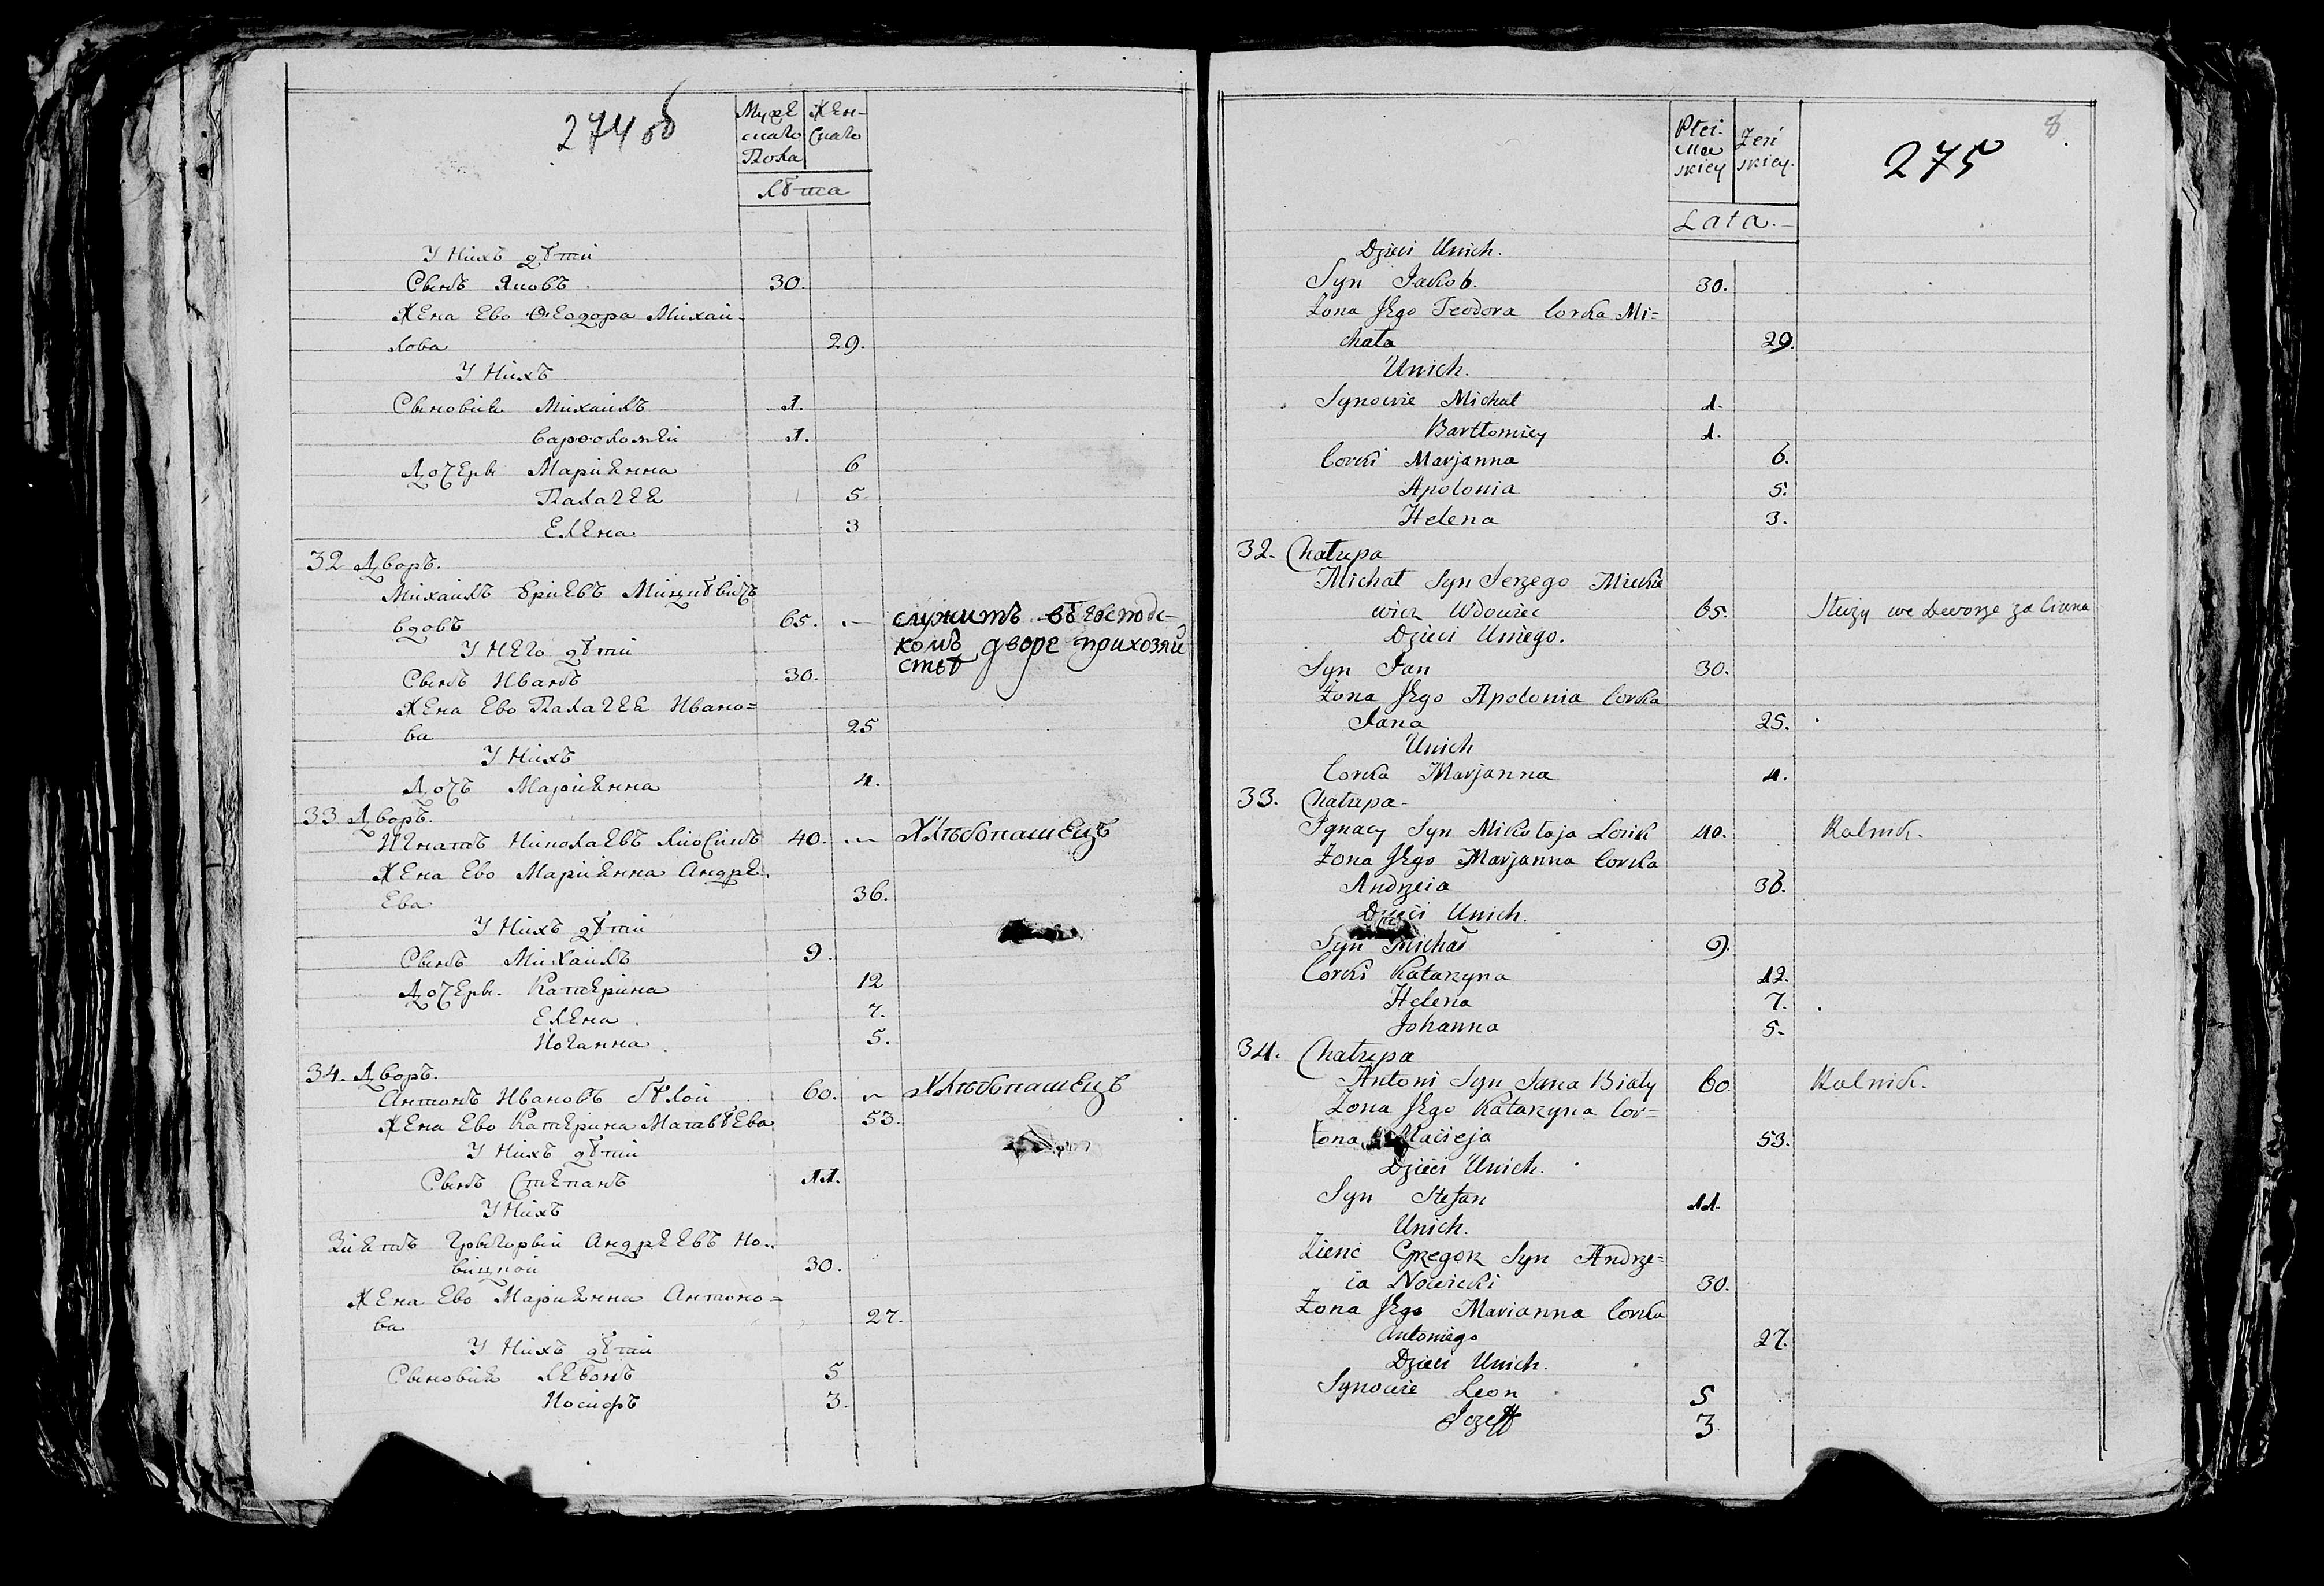 274 об
Муже
скаго
Пола
Жен-
скаго
Лѣта
У Нихъ дѣти
Сынъ Яковъ 30.
Жена Ево Ѳеодора Михаи-
лова 29.
У Нихъ
Сыновия Михаилъ 1.
Варфоломей 1.
Дочери Мариенна 6
Палагея 5
Елена 3
32 Дворъ.
Михаилъ Ериевъ Мицкѣвичъ
вдовъ 65. служитъ въ господс-
комъ дворе при хозяй
ствѣ
У Него дѣти
Сынъ Иванъ 30.
Жена Ево Палагея Ивано=
ва 25
У Нихъ
Дочь Мариенна 4.
33 Дворъ.
Игнатъ Николаевъ 40. Хлѣбопашецъ
Жена Ево Мариенна Андре-
Ева 36.
У Нихъ дѣти
Сынъ Михаилъ 9.
Дочери. Катерина 12
Елена. 7.
Иоганна. 5.
34. Дворъ.
Антонъ Ивановъ бѣлой 60. Хлѣбопашецъ
Жена Ево Катерина Матвѣева 53.
У Нихъ дѣти
Сынъ Степанъ 11.
У Нихъ
Зиетъ Грыгорый Андреевъ Но-
вицкой 30.
Жена Ево Мариенна Антоно=
ва 27.
У Нихъ дѣти
Сыновия Левонъ 5
Иосифъ 3.
Płci
mę
skiey
Żeń
skiey.
Lata.
8.
275
Dzieci Unich.
Syn Jakob. 30.
Żona Jego Teodora Corka Mi=
chała 29.
Unich.
Synowie Michał 1.
Bartłomiey 1.
Corki Marjanna 6.
Apolonia 5.
Helena 3.
32. Chałupa
Michał Syn Jerzego Mickie
wicz Wdowiec 65. Służy we Dworze za
Dzieci Uniego.
Syn Jan 30.
Żona Jego Apolonia Corka
Jana 25.
Unich
Corka Marjanna 4.
33. Chałupa-
Ignacy Syn Mikołaja 40. Rolnik.
Żona Jego Marjanna Corka
Andrzeia 36.
Dzieci Unich.
Syn Michał 9.
Corki Katarzyna 12.
Helena 7.
Johanna 5.
34. Chałupa
Antoni Syn Jana Biały 60. Rolnik.
Żona Jego Katarzyna Cor=
Macieja 53.
Dzieci Unich.
Syn Stefan 11.
Unich.
Zienć Grzegorz Syn Andrze=
ia Nowicki 30.
Żona Jego Marianna Corka
Antoniego 27.
Dzieci Unich.
Synowie Leon 5
Jozeff 3